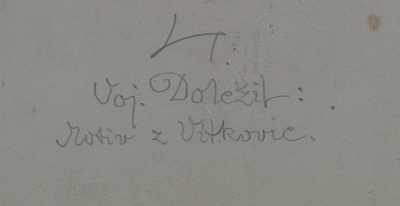 4.
Voj. Doležil:
Motiv z Vítkovic.